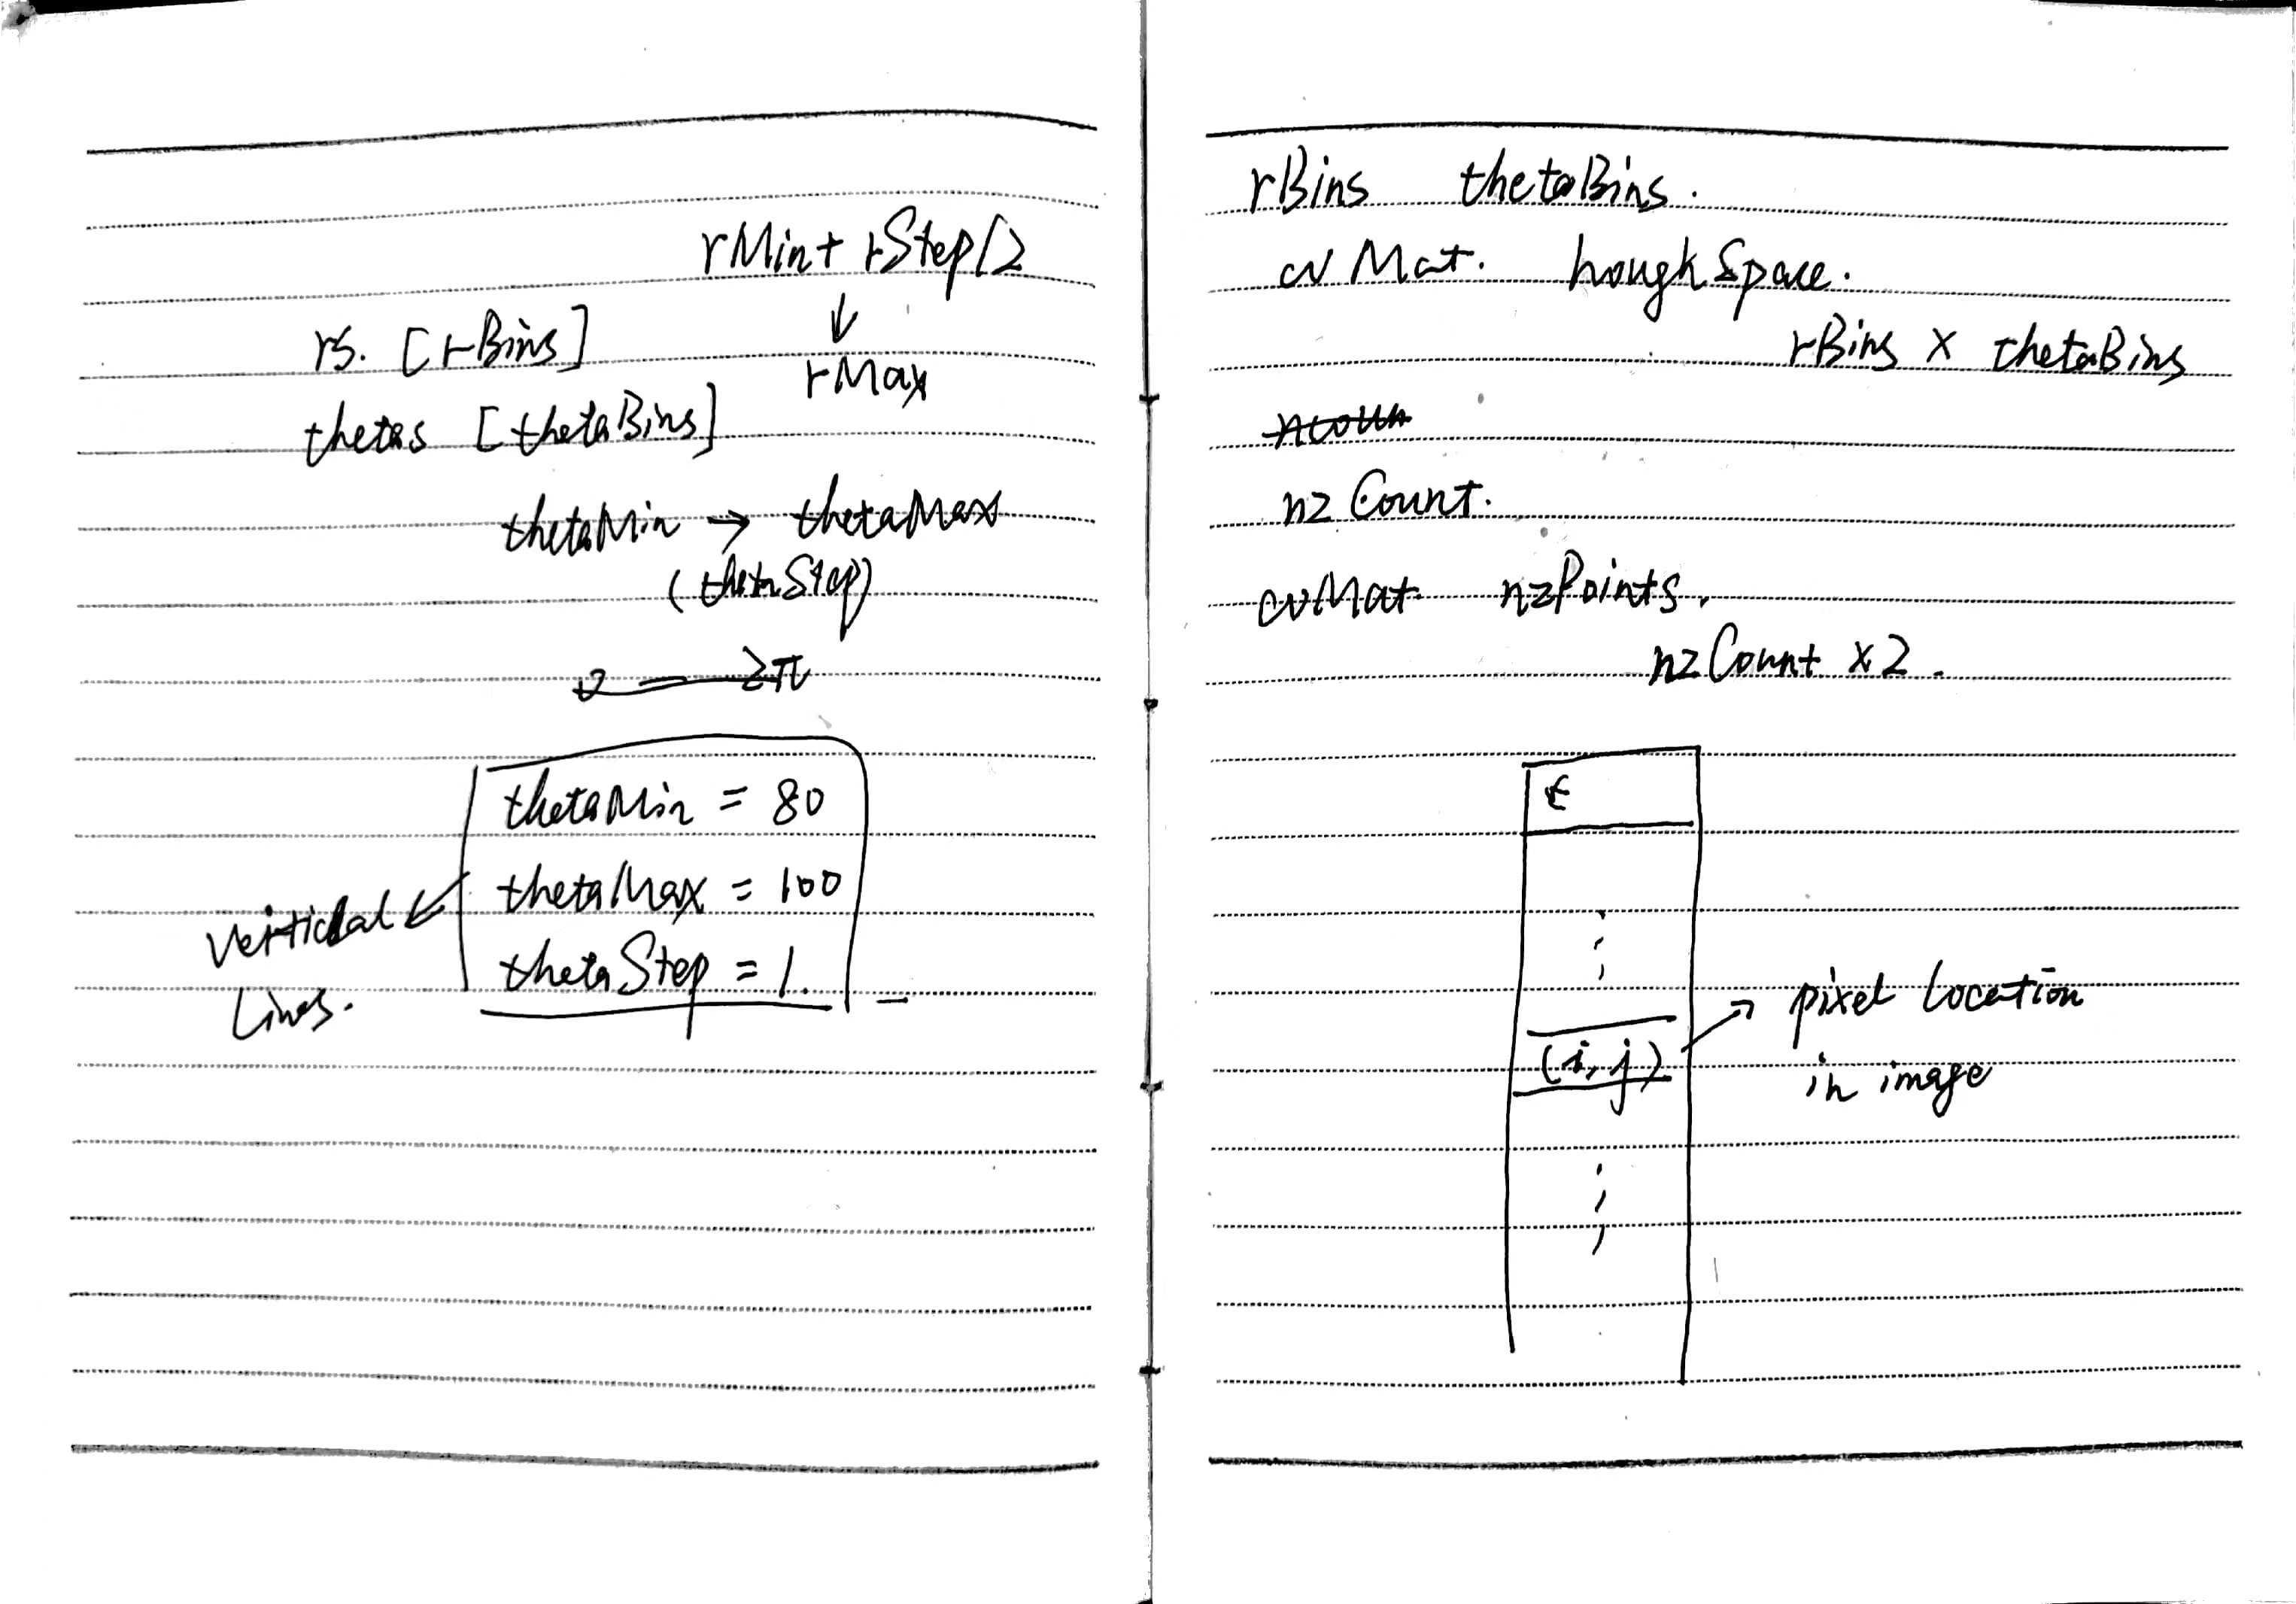 rMin + rStep/2
↓
rs. [rBins] rMax
thetas [thetaBins]
thetaMin → thetaMax
(thetaStep)
0 → π
thetaMin = 80
thetaMax = 100
vertical
thetaStep = 1.
Lines.
rBins thetaBins.
cvMat. houghSpace.
rBins × thetaBins
ncoun
nzCount.
cvMat nzPoints.
nzCount × 2.
(i, j)
pixel location
in image